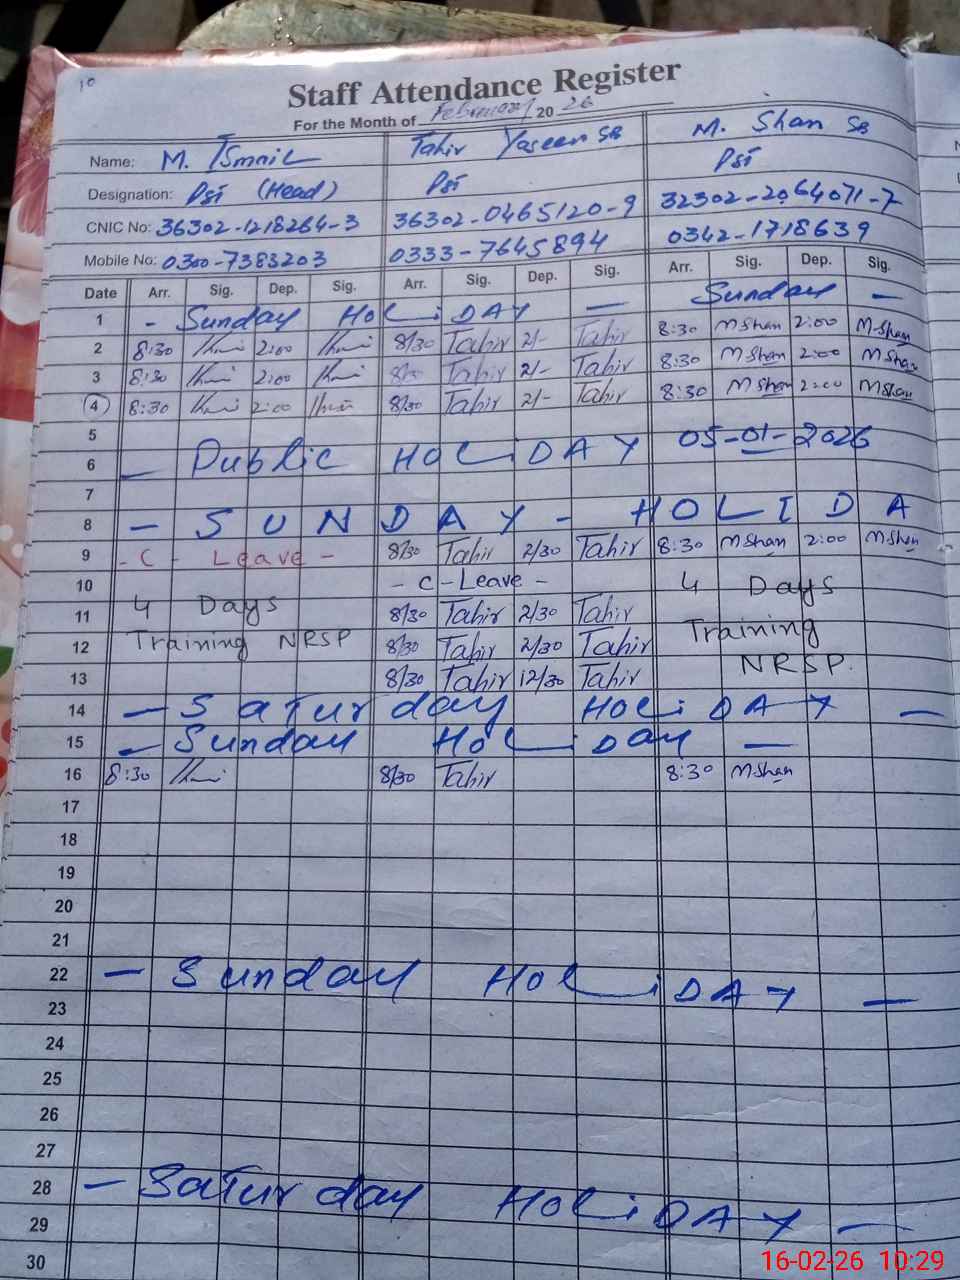 10
Staff Attendance Register
For the Month of February 2026
Name: M. Ismail Tahir Yaseen SB M. Shan SB
Designation: PSI (Head) PSI PSI
CNIC No: 36302-1218264-3 36302-0465120-9 32302-2064071-7
Mobile No: 0300-7383203 0333-7645894 0342-1718639
Date Arr. Sig. Dep. Sig. Arr. Sig. Dep. Sig. Arr. Sig. Dep. Sig.
1 - Sunday HoLiDAY — Sunday —
2 8:30 2:00 8/30 Tahir 2/- Tahir 8:30 MShan 2:00 M-Shan
3 8:30 2:00 8/30 Tahir 2/- Tahir 8:30 MShan 2:00 MShan
4 8:30 2:00 8/30 Tahir 2/- Tahir 8:30 MShan 2:00 MShan
5
6 — Public HOLiDAY 05-01-2026
7
8 — SUNDAY - HOLIDA
9 - C - Leave - 8/30 Tahir 2/30 Tahir 8:30 MShan 2:00 MShan
10 - C - Leave - 4 Days
11 4 Days 8/30 Tahir 2/30 Tahir
12 Training NRSP 8/30 Tahir 2/30 Tahir Training
13 8/30 Tahir 12/30 Tahir NRSP.
14 — SaTurday HOLiDAY —
15 — Sunday HoLiDay —
16 8:30 8/30 Tahir 8:30 MShan
17
18
19
20
21
22 — Sunday HoLiDAY —
23
24
25
26
27
28 — SaTurday HoLiDAY —
29
30
16-02-26 10:29